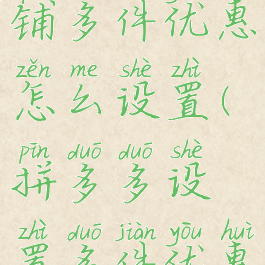 铺多件优惠
zěn me shè zhì
怎么设置(
pīn duō duō shè
拼多多设
zhì duō jiàn yōu huì
置多件优惠